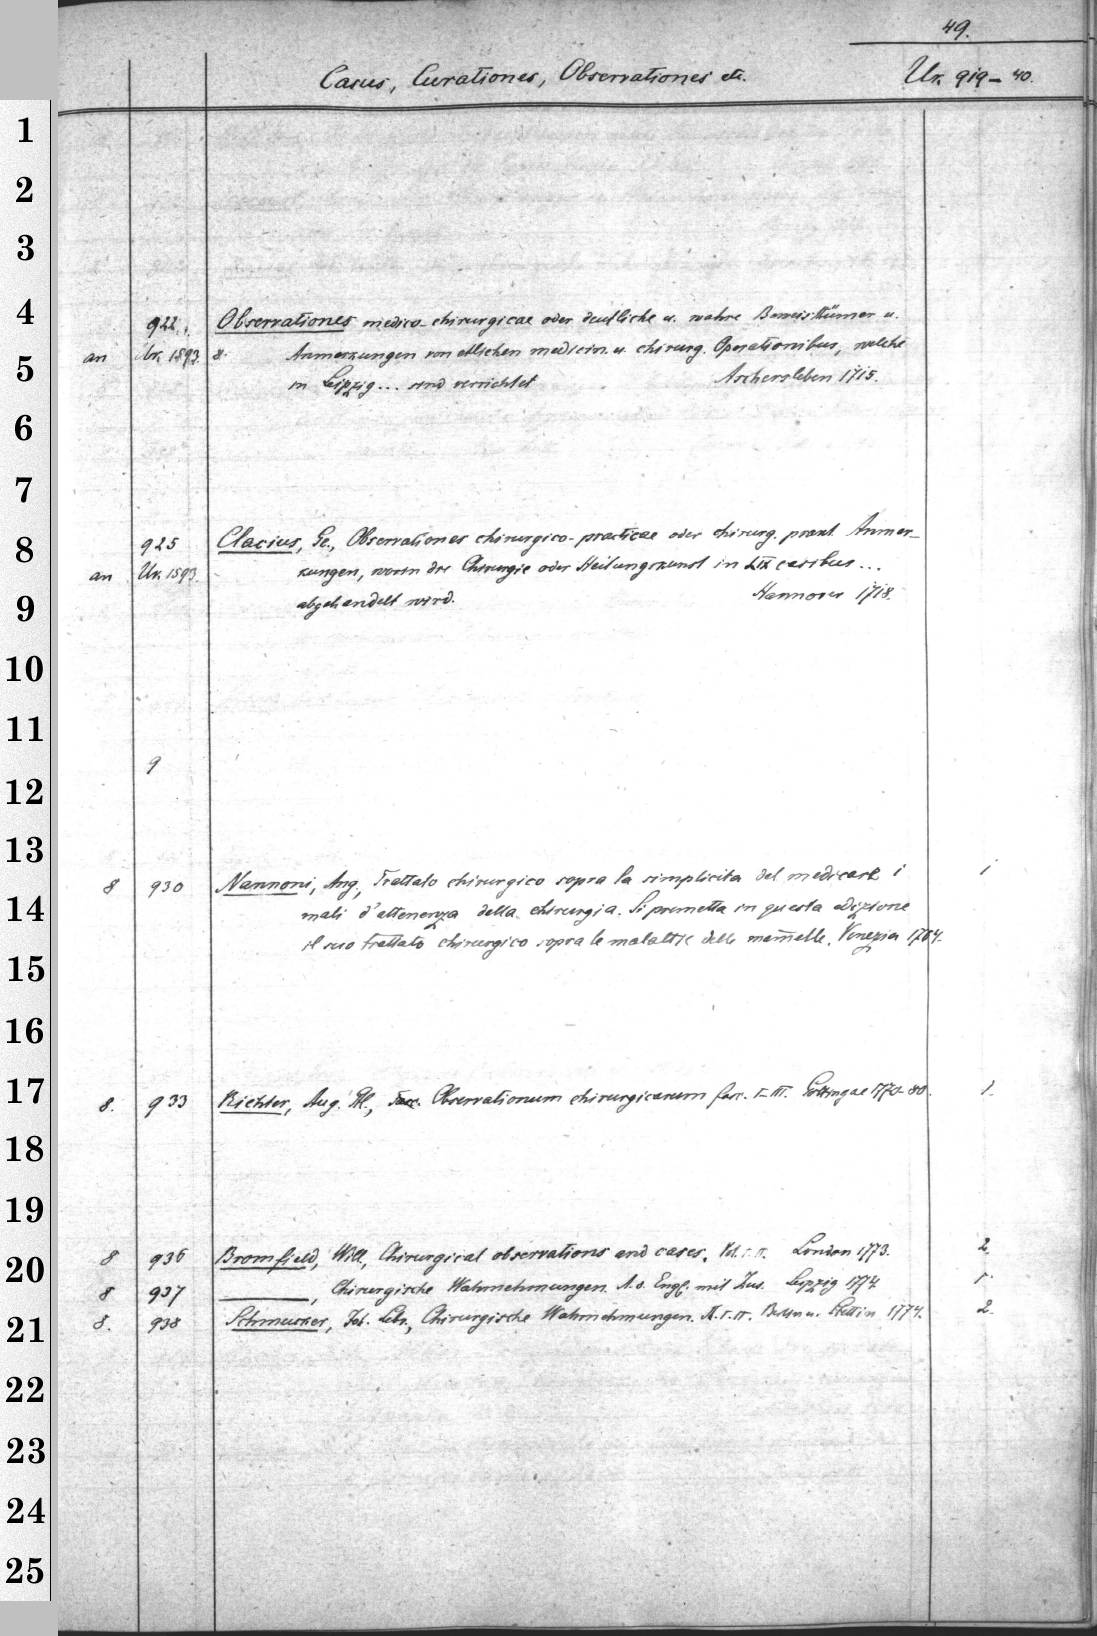 49.
Casus, Curationes, Observationes etc. Ur. 919-40.
1
2
3
4
922. Observationes medico-chirurgicae oder deutliche u. wahre Beweisthümer u.
an Ur. 1593. 8. Anmerkungen von etlichen medicin. u. chirurg. Operationibus, welche
5
in Leipzig... sind verrichtet Aschersleben 1715.
6
7
8
925 Clacius, Ge., Observationes chirurgico-practicae oder chirurg. pract. Anmer-
an Ur. 1593. kungen, worin die Chirurgie oder Heilungskunst in LIX casibus...
9
abgehandelt wird. Hannover 1718.
10
11
9
12
13
8 930 Nannoni, Ang., Trattato chirurgico sopra la simplicita del medicare i 1
14
mali d'attenenza della chirurgia. Si premetta in questa edizione
il suo trattato chirurgico sopra le malattie delle mam̄elle. Venezia 1764.
15
16
17
8. 933 Richter, Aug. Gl., Observationum chirurgicarum fasc. I-III. Gottingae 1770-80. 1.
18
19
8 936 Bromfield, Will., Chirurgical observations and cases. Vol. I. II. London 1773. 2.
20
8 937 ———, Chirurgische Wahrnehmungen. A. d. Engl. mit Zus. Leipzig 1774 1.
8. 938 Schmucker, Joh. Lebr., Chirurgische Wahrnehmungen. Th. I. II. Berlin u. Stettin 1774. 2.
21
22
23
24
25